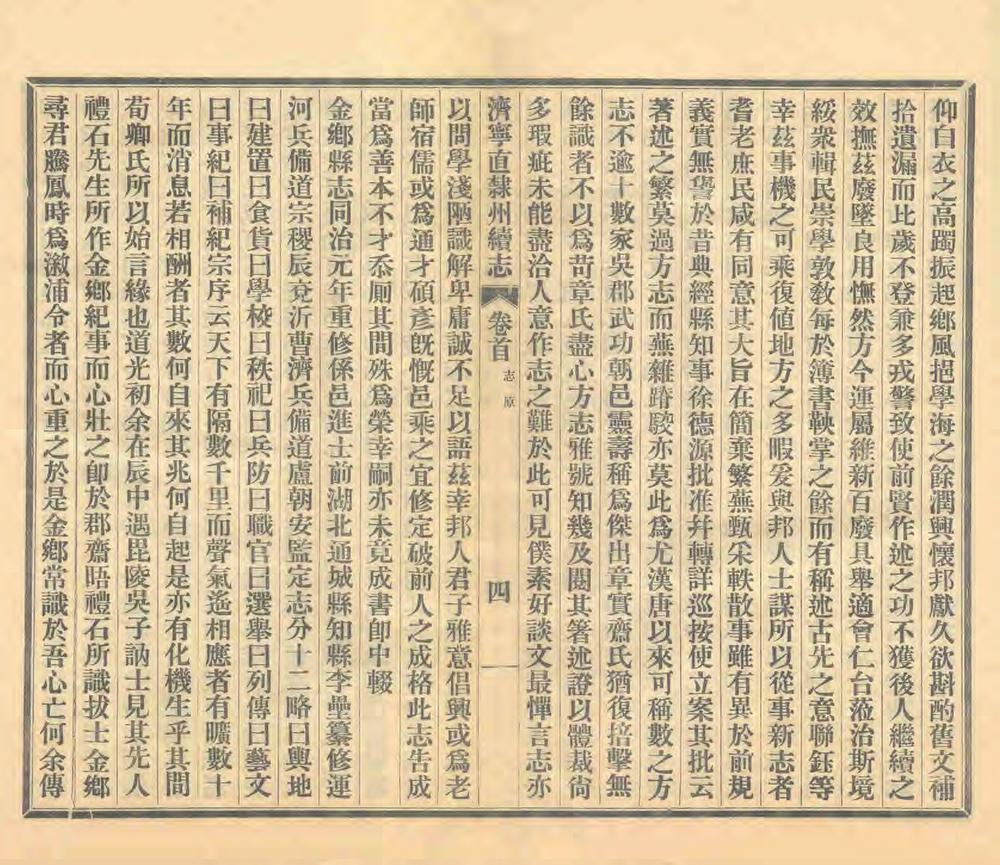 仰白衣之高躅振起鄉風挹學海之餘潤興懷邦獻久欲斟酌舊文補
拾遺漏而比歲不登兼多戎警致使前賢作述之功不獲後人繼續之
效撫茲廢墜良用憮然方今運屬維新百廢具舉適會仁台蒞治斯境
綏衆輯民崇學敦教每於簿書鞅掌之餘而有稱述古先之意聯鈺等
幸茲事機之可乘復値地方之多暇爰與邦人士謀所以從事新志者
耆老庶民咸有同意其大旨在簡棄繁蕪甄采軼散事雖有異於前規
義實無訾於昔典經縣知事徐德源批准幷轉詳巡按使立案其批云
著述之繁莫過方志而蕪雜踳駮亦莫此爲尤漢唐以來可稱數之方
志不逾十數家吳郡武功朝邑靈壽稱爲傑出章實齋氏猶復掊擊無
餘識者不以爲苛章氏盡心方志雅號知幾及閱其箸述證以體裁尙
多瑕疵未能盡洽人意作志之難於此可見僕素好談文最憚言志亦
濟寧直隸州續志 卷首 志原 四
以問學淺陋識解卑庸誠不足以語茲幸邦人君子雅意倡興或爲老
師宿儒或爲通才碩彥旣慨邑乘之宜修定破前人之成格此志告成
當爲善本不才忝厠其間殊爲榮幸嗣亦未竟成書卽中輟
金鄉縣志同治元年重修係邑進士前湖北通城縣知縣李壘纂修運
河兵備道宗稷辰兗沂曹濟兵備道盧朝安監定志分十二略曰輿地
曰建置曰食貨曰學校曰秩祀曰兵防曰職官曰選舉曰列傳曰藝文
曰事紀曰補紀宗序云天下有隔數千里而聲氣遙相應者有曠數十
年而消息若相酬者其數何自來其兆何自起是亦有化機生乎其間
荀卿氏所以始言緣也道光初余在辰中遇毘陵吳子訥士見其先人
禮石先生所作金鄉紀事而心壯之卽於郡齋晤禮石所識拔士金鄉
尋君騰鳳時爲漵浦令者而心重之於是金鄉常識於吾心亡何余傳